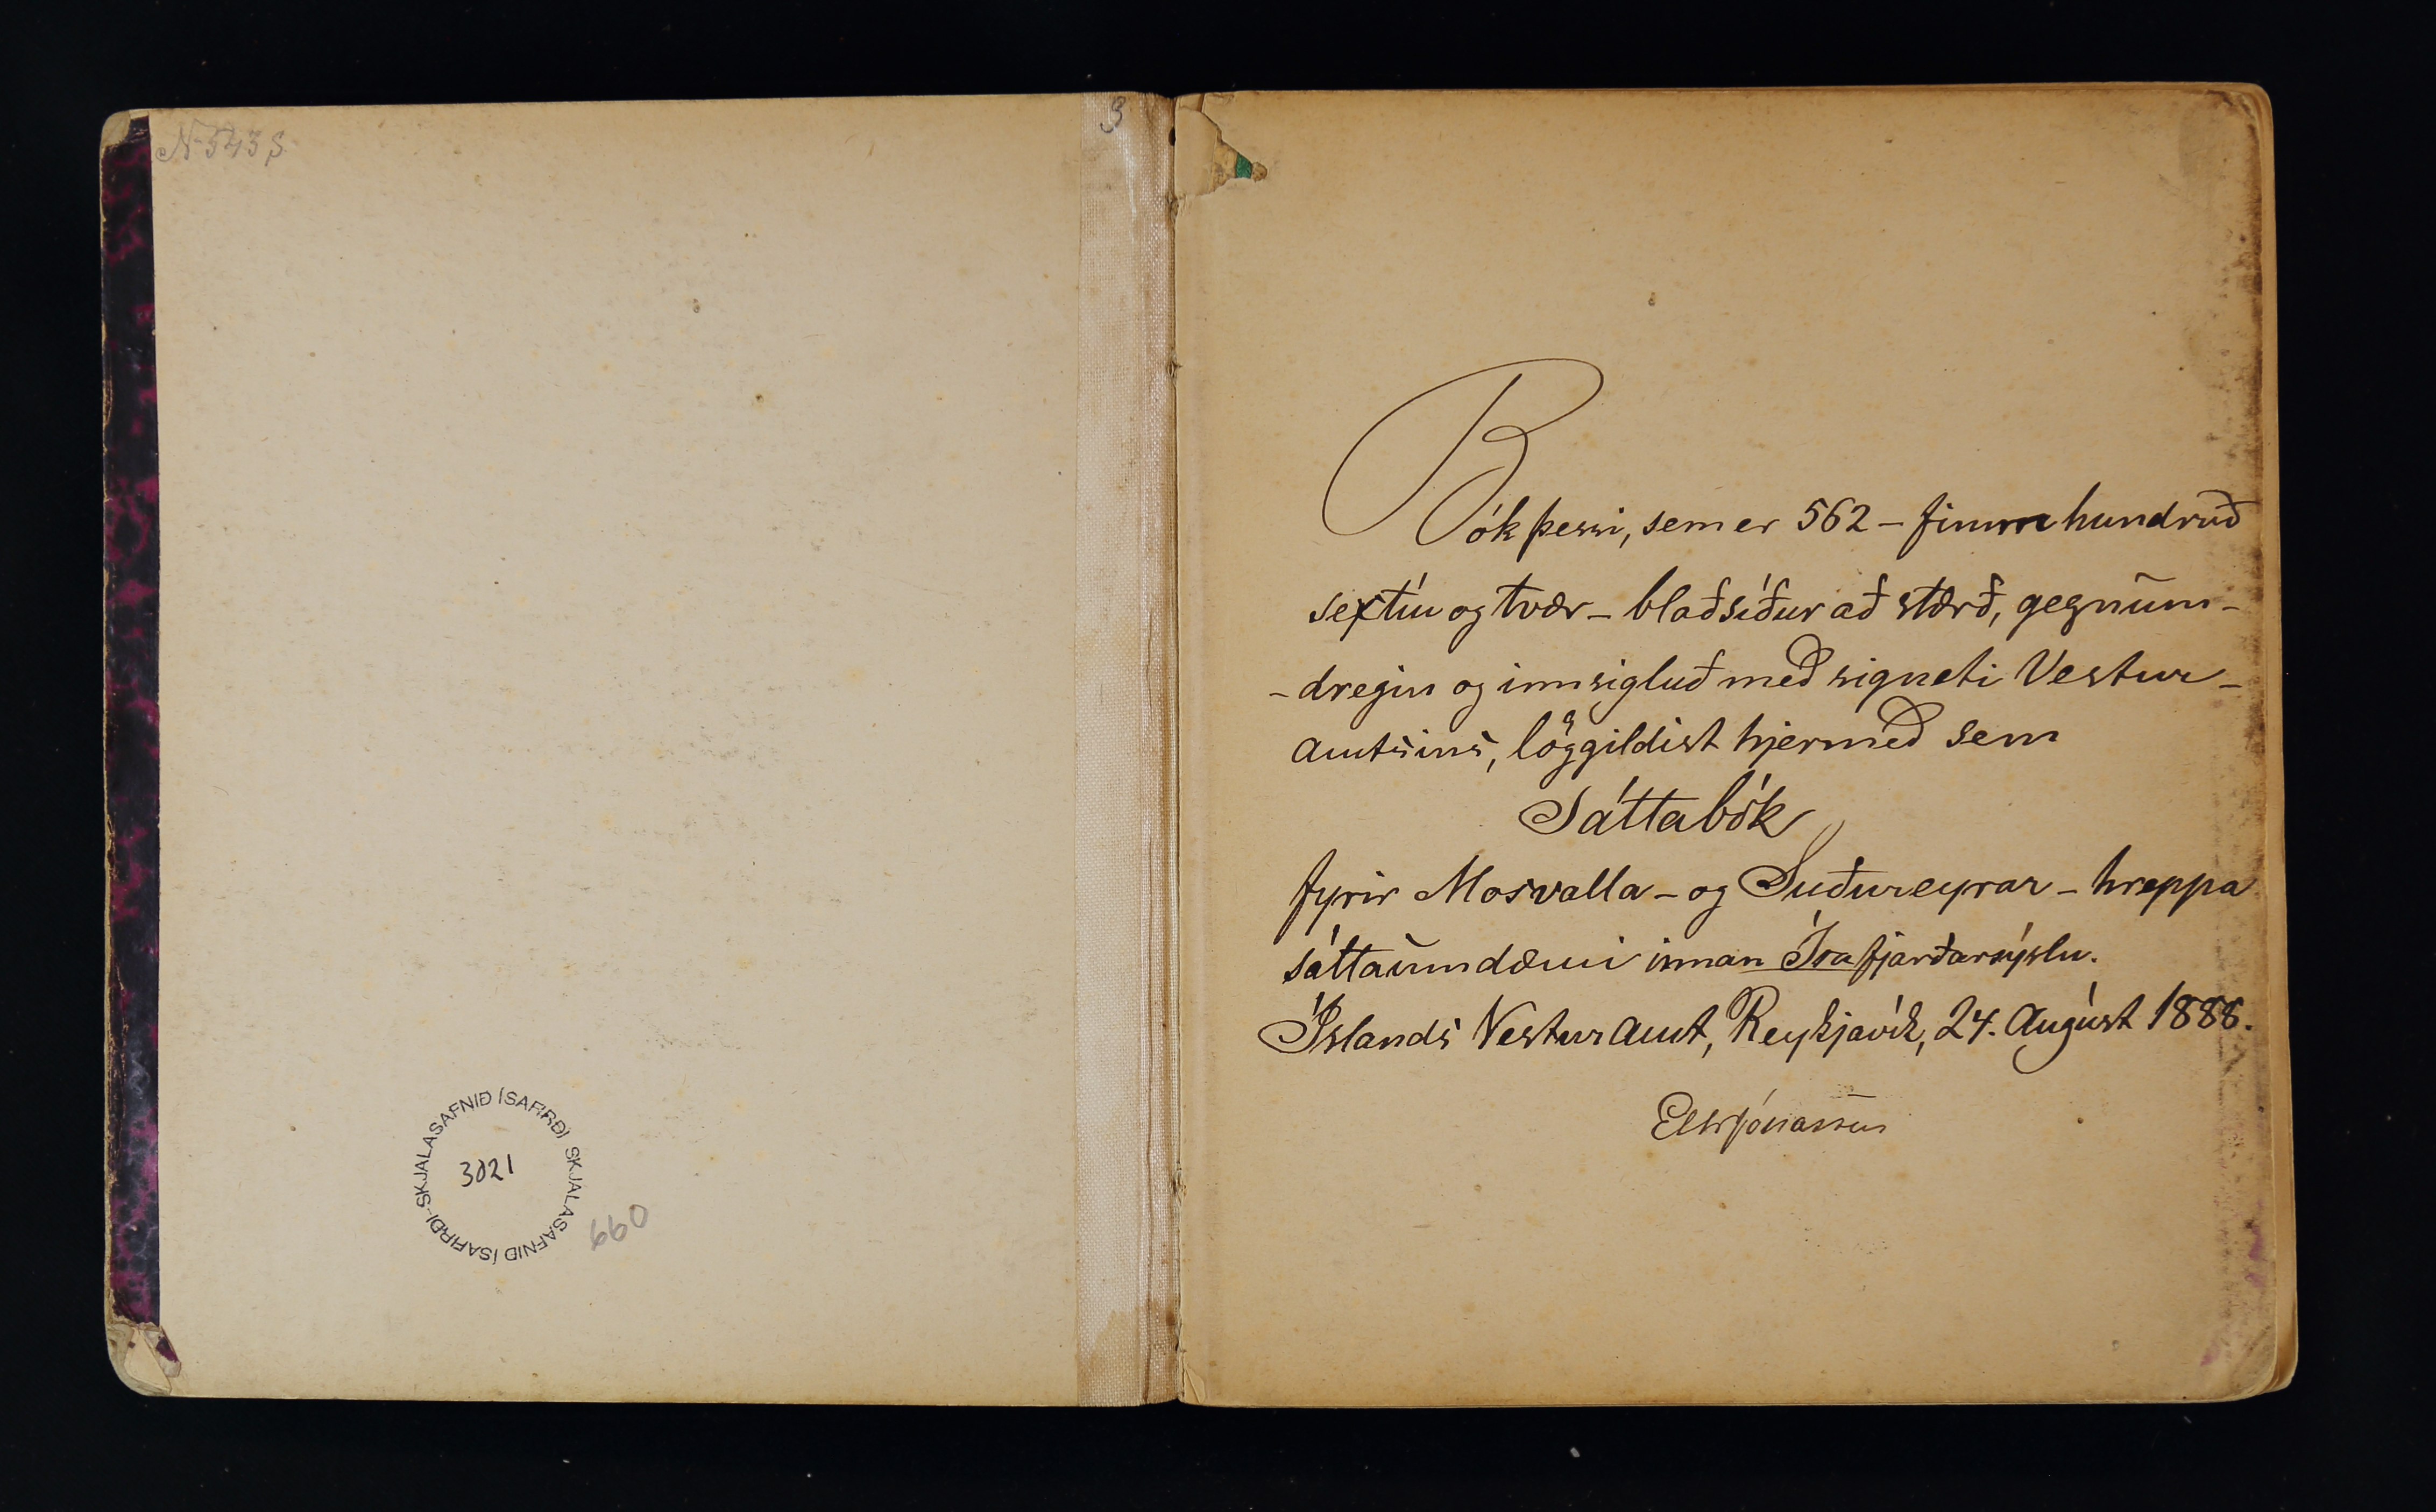 N 543 S
Bók þessi, sem er 562 - fimm hundruð
sextíu og tvær - blaðsíður að stærð, gegnum-
- dregin og innsigluð með signeti Vestur-
amtsins, löggildist hjermeð sem
Sáttabók
fyrir Mosvalla - og Suðureyrar - hreppa
sáttaumdæmi innan Ísafjarðarsýslu.
Íslands Vesturamt, Reykjavík, 24. August 1888.
E Th Jónassen
SKJALASAFNIÐ ÍSAFIRÐI SKJALASAFNIÐ ÍSAFIRÐI
3021
660